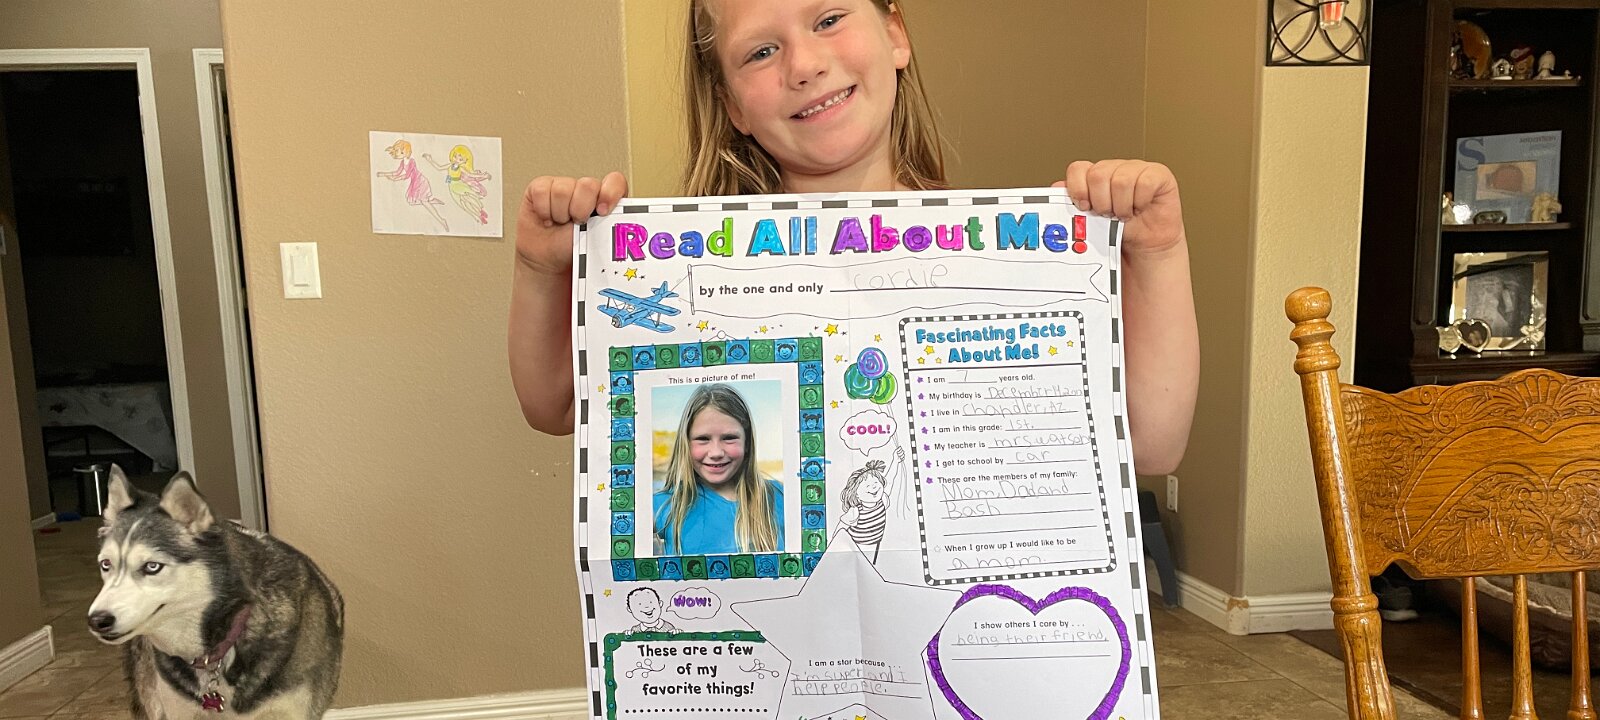 Read All About Me!
by the one and only cordie
This is a picture of me!
COOL!
Fascinating Facts
About Me!
I am 7 years old.
My birthday is December 14
I live in Chandler, Az
I am in this grade: 1st.
My teacher is mrs watson
I get to school by car
These are the members of my family:
Mom, Dad and
Bash
When I grow up I would like to be
a mom.
WOW!
These are a few
of my
favorite things!
I am a star because . . .
I'm super and I
help people.
I show others I care by . . .
being their friend.